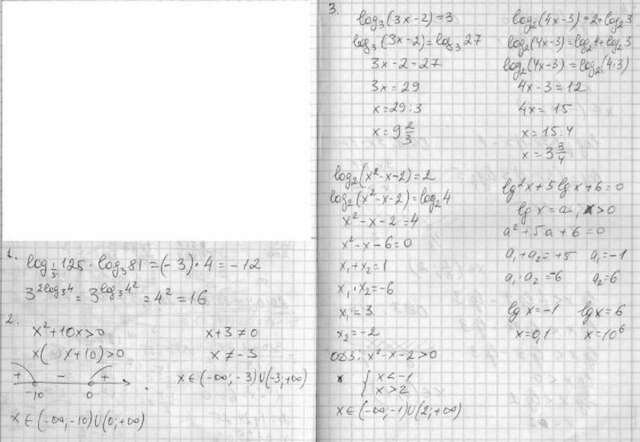 1.
log_{1/5} 125 · log_3 81 = (-3) · 4 = -12
3^{2log_3 4} = 3^{log_3 4^2} = 4^2 = 16
2.
x^2+10x>0
x( x+10)>0
+ - +
-10 0
x∈(-∞;-10)∪(0;+∞)
x+3≠0
x≠-3
x∈(-∞;-3)∪(-3;+∞)
3.
log_3(3x-2)=3
log_3(3x-2)=log_3 27
3x-2-27
3x=29
x=29:3
x=9 2/3
log_2(4x-3)=2+log_2 3
log_2(4x-3)=log_2 4+log_2 3
log_2(4x-3)=log_2(4·3)
4x-3=12
4x=15
x=15:4
x=3 3/4
log_2(x^2-x-2)=2
log_2(x^2-x-2)=log_2 4
x^2-x-2=4
x^2-x-6=0
x_1+x_2=1
x_1·x_2=-6
x_1=3
x_2=-2
ОДЗ: x^2-x-2>0
{ x<-1
x>2
x∈(-∞;-1)∪(2;+∞)
lg^2x+5lgx+6=0
lg x=a; x>0
a^2+5a+6=0
a_1+a_2=+5 a_1=-1
a_1·a_2=-6 a_2=6
lg x=-1 lg x=6
x=0,1 x=10^6